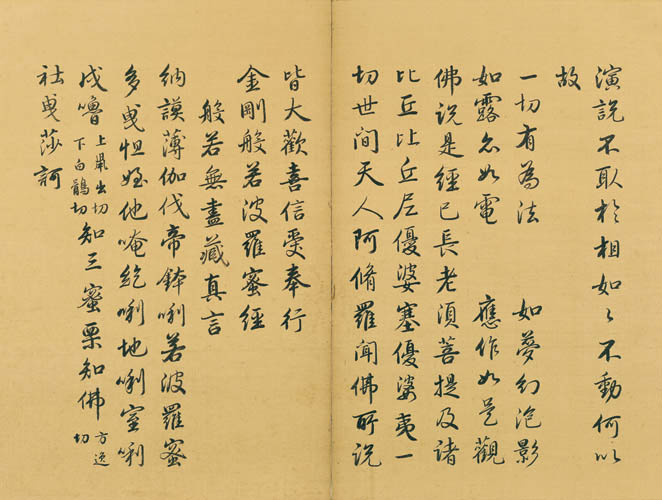 演說不取於相如〻不動何以
故
一切有為法 如夢幻泡影
如露亦如電 應作如是觀
佛說是經已長老須菩提及諸
比丘比丘尼優婆塞優婆夷一
切世間天人阿脩羅聞佛所說
皆大歡喜信受奉行
金剛般若波羅蜜經
般若無盡藏真言
納謨薄伽伐帝鉢唎若波羅蜜
多曳怛姪他唵紇唎地唎室唎
戍嚕上鼡出切下白鶻切知三蜜栗知佛方逸切
社曳莎訶